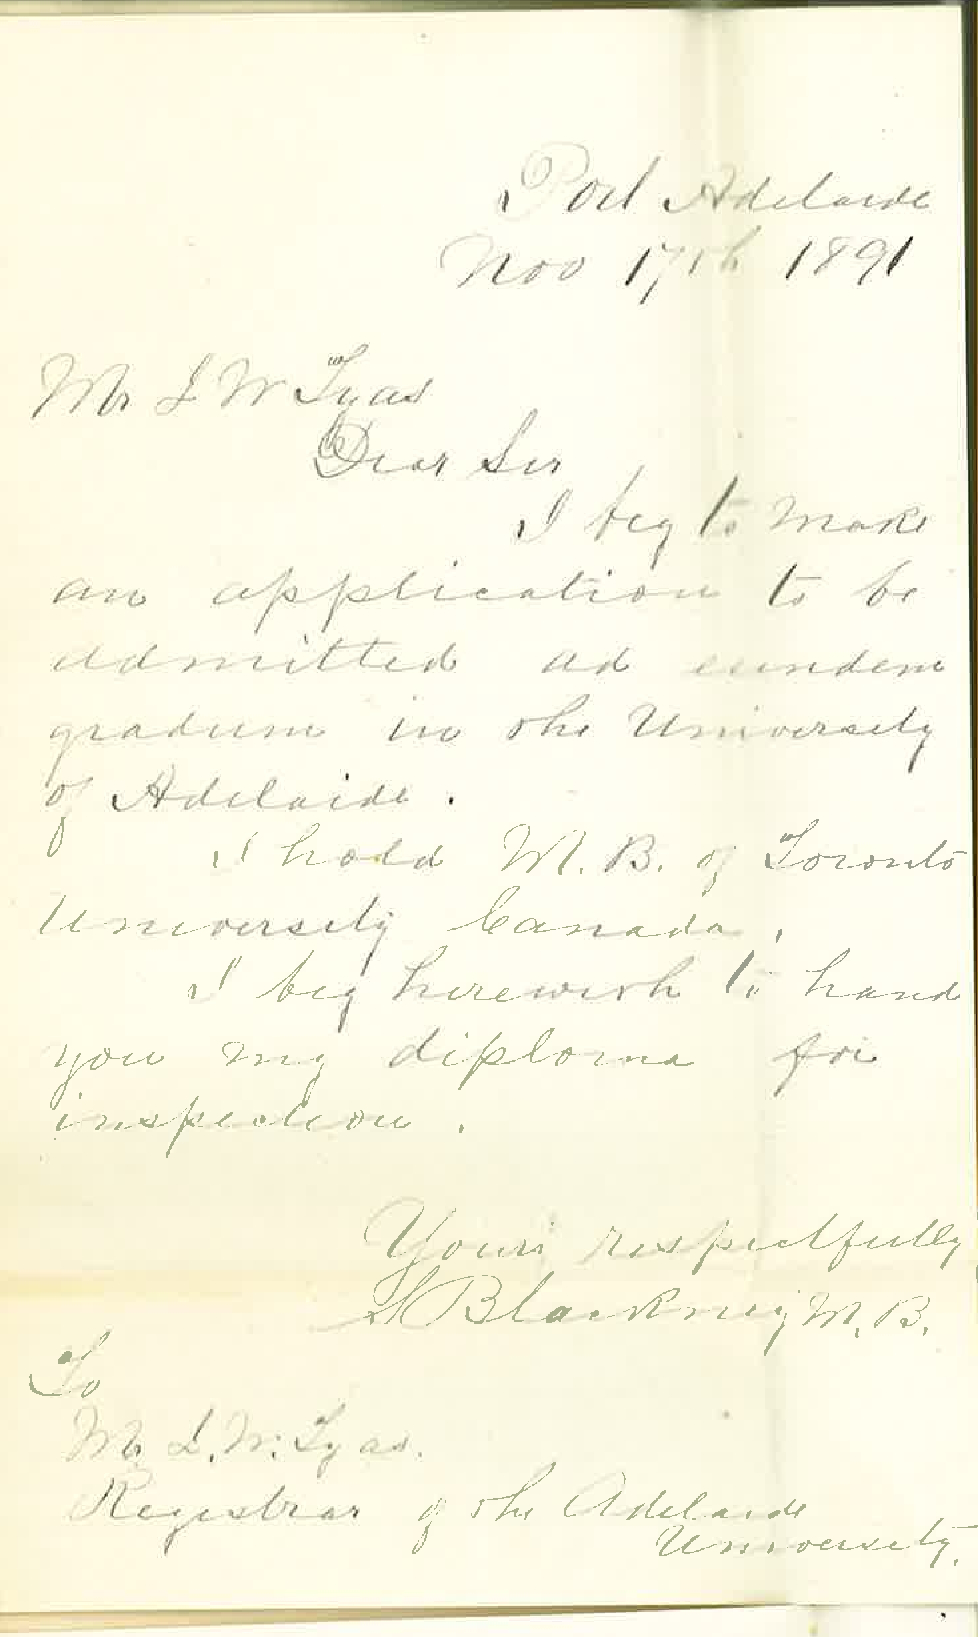 Port Adelaide
Nov 17th 1891
Mr J W Tyas
Dear Sir
I beg to make
an application to be
admitted ad eundem
gradum in the University
of Adelaide.
I hold M.B. of Toronto
University Canada.
I beg herewith to hand
you my diploma for
inspection.
Yours respectfully
S Blackney M.B.
To
Mr J. W. Tyas.
Registrar of the Adelaide
University.